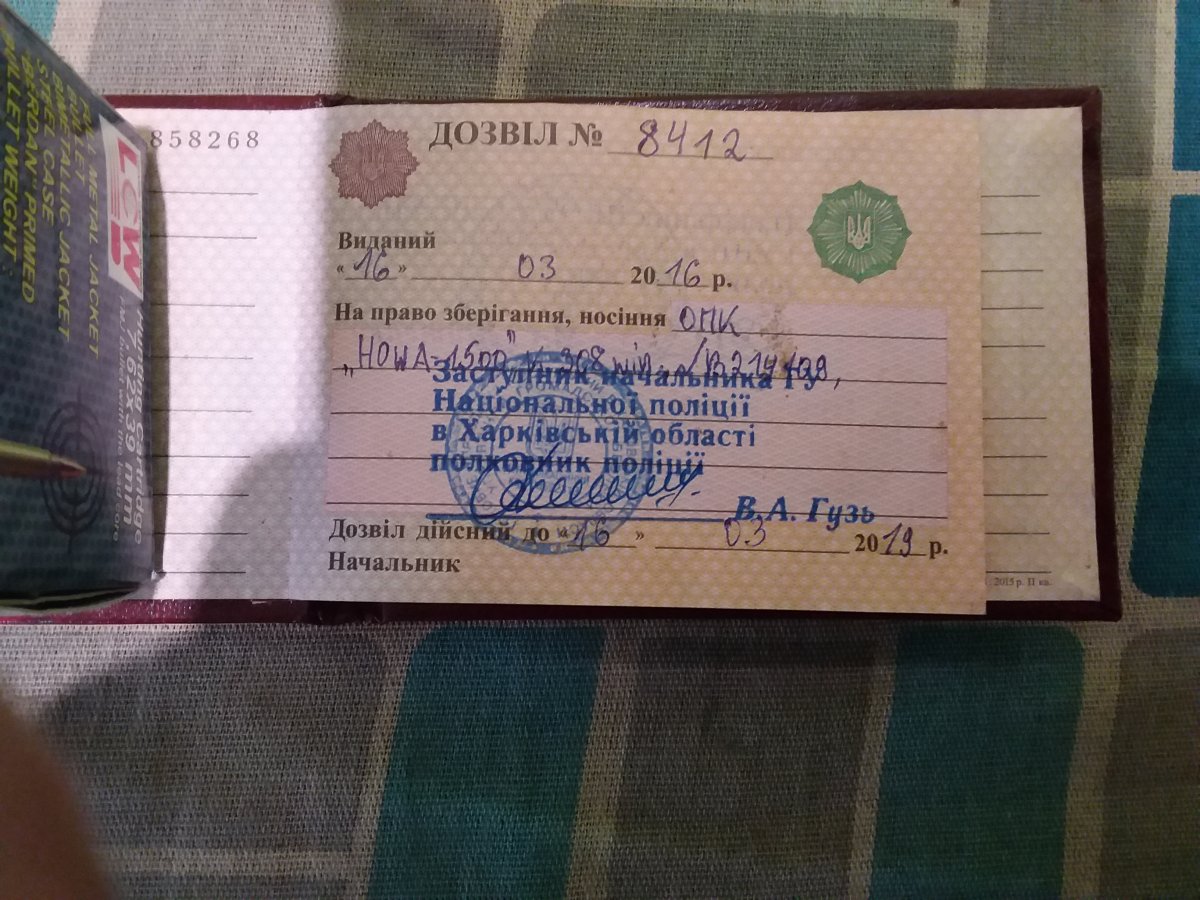 858268
ДОЗВІЛ № 8412
Виданий
"16" 03 2016 р.
На право зберігання, носіння ОПК
„HOWA-1500"
Заступник начальника ГУ
Національної поліції
в Харківській області
полковник поліції
В.А. Гузь
Дозвіл дійсний до "16" 03 2019 р.
Начальник
2015 р. II кв.
LCW
METAL JACKET
BIMETALLIC JACKET
STEEL CASE
"BERDAN" PRIMED
BULLET WEIGHT:
Hunting cartridge
7,62x39 mm